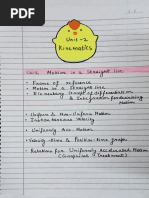 Unit - 2
Kinematics
Motion in a Straight line
• Frame of reference
• Motion in a Straight line
• Elementary Concept of differentiation
& Integration for describing
Motion
• Uniform & Non-Uniform Motion
• Instantaneous Velocity
• Uniformly Acc. Motion
• Velocity-time & Position-time graph
• Relations for Uniformly Accelerated Motion
(Graphical Treatment)